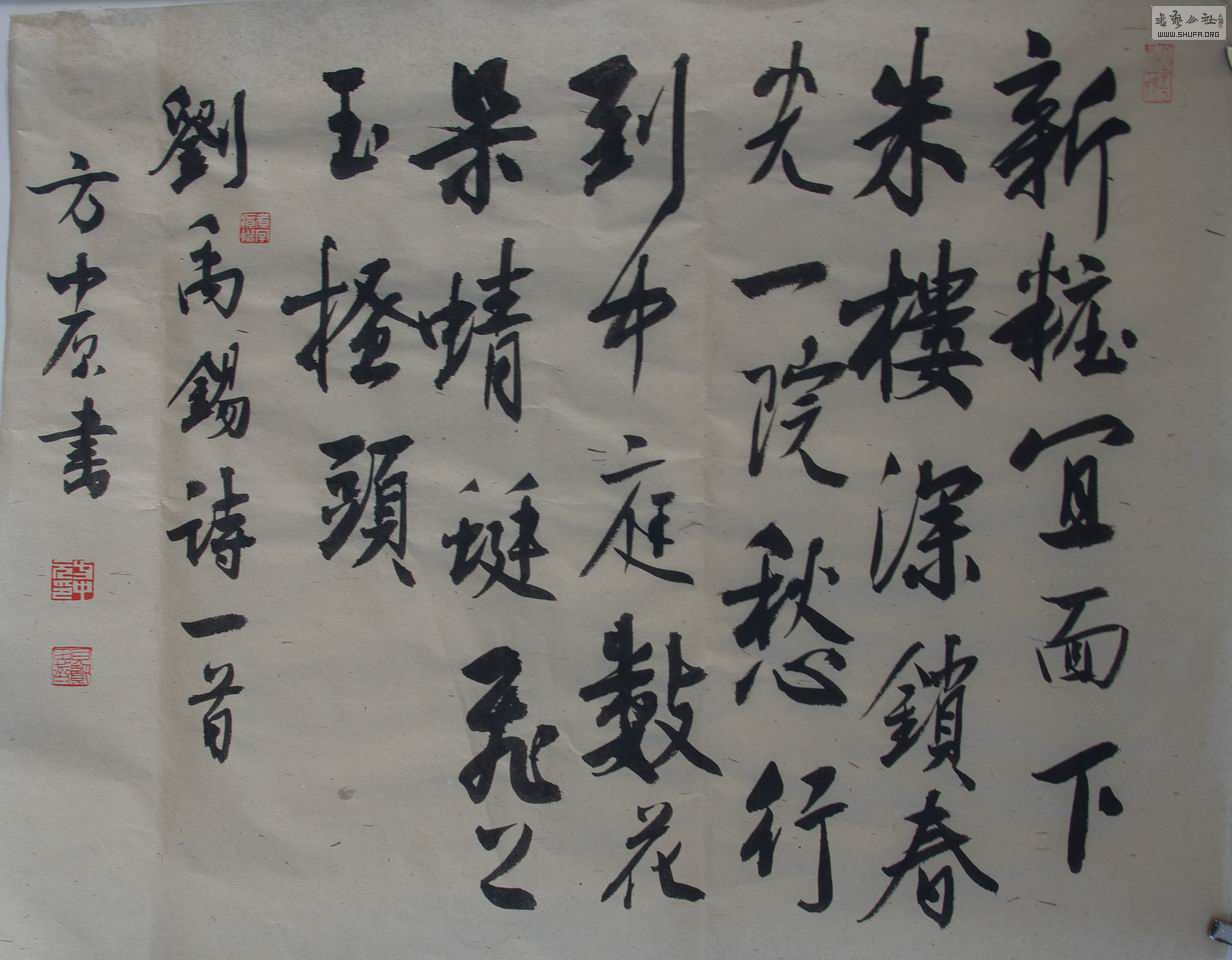 新粧宜面下
朱樓深鎖春
光一院愁行
到中庭數花
朵蜻蜓飛上
玉搔頭
劉禹錫詩一首
方中原書
WWW.SHUFA.ORG